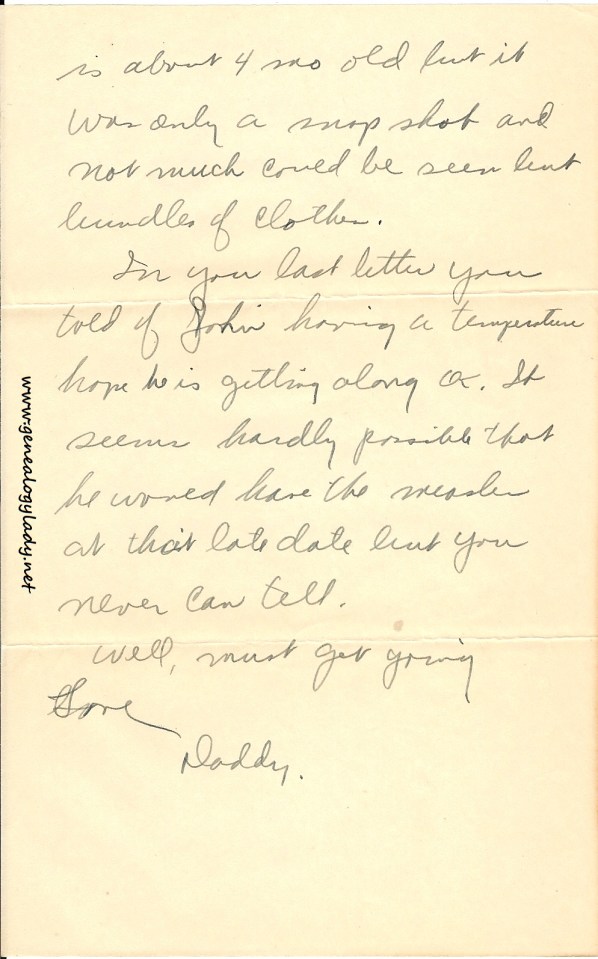 is about 4 mo old but it
was only a snap shot and
not much could be seen but
bundles of clothes.
In you last letter you
told of John having a temperature
hope he is getting along OK. It
seems hardly possible that
he would have the measles
at that late date but you
never can tell.
Well, must get going
Love
Daddy.
www.genealogylady.net